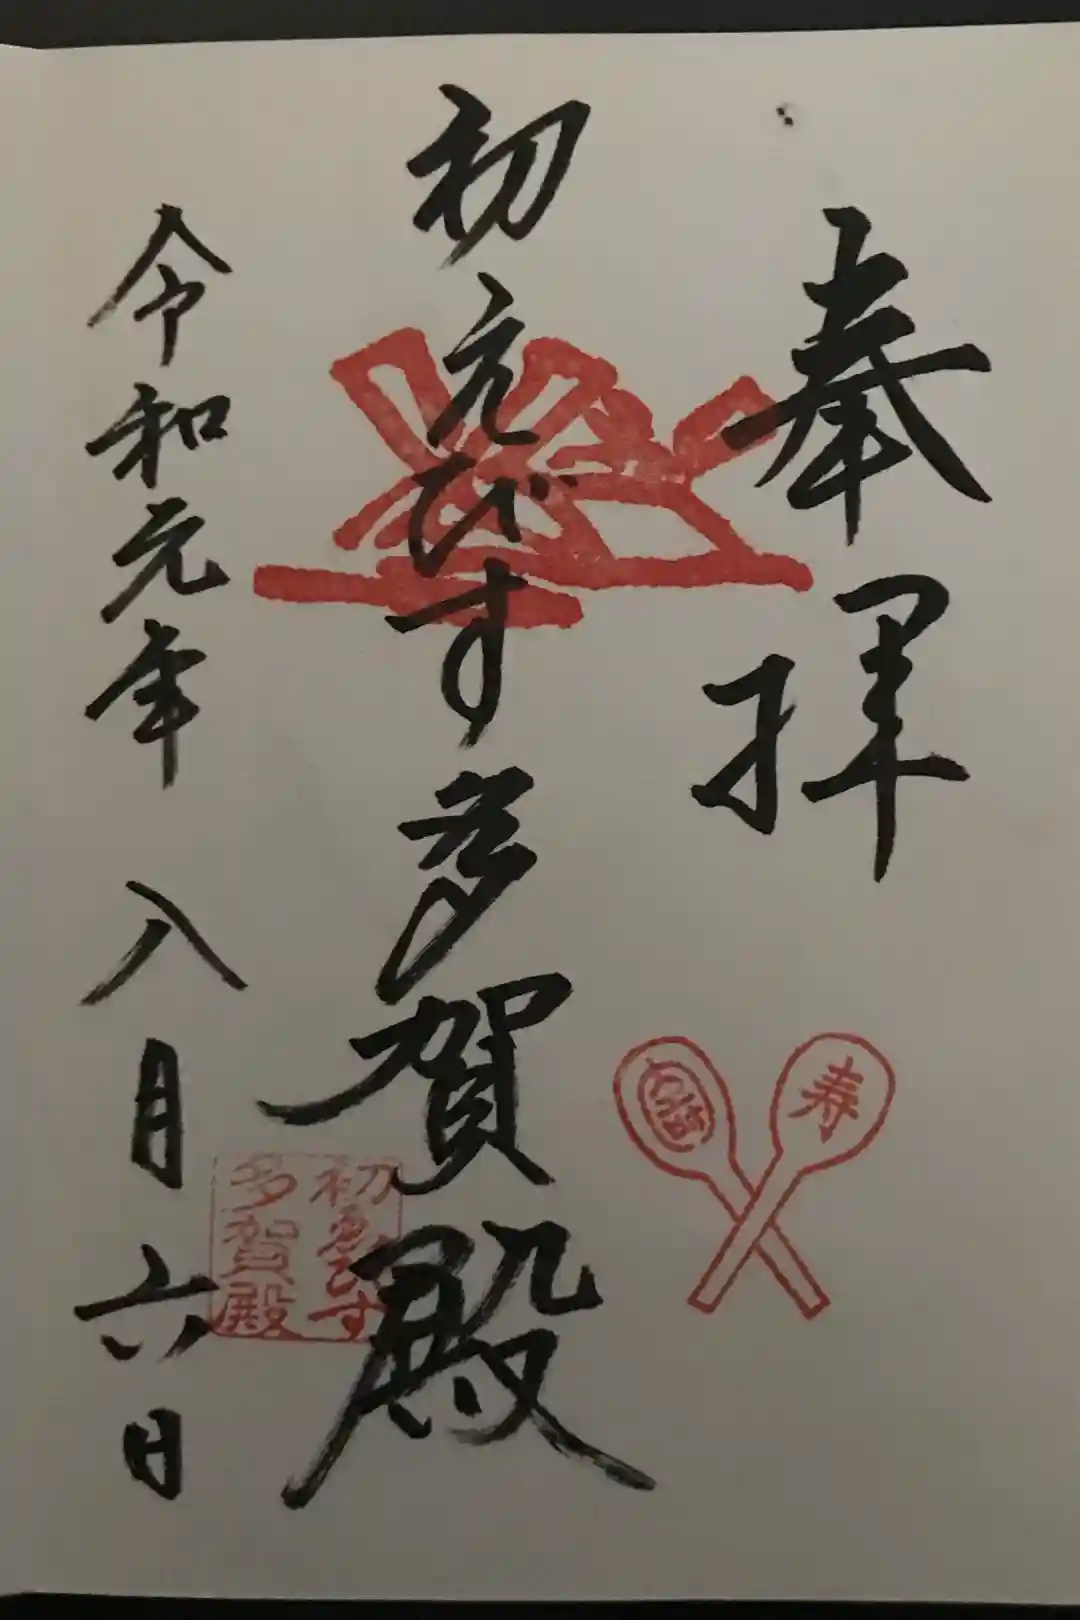 奉拝
寿
初えびす多賀殿
初ゑびす
多賀殿
令和元年 八月六日